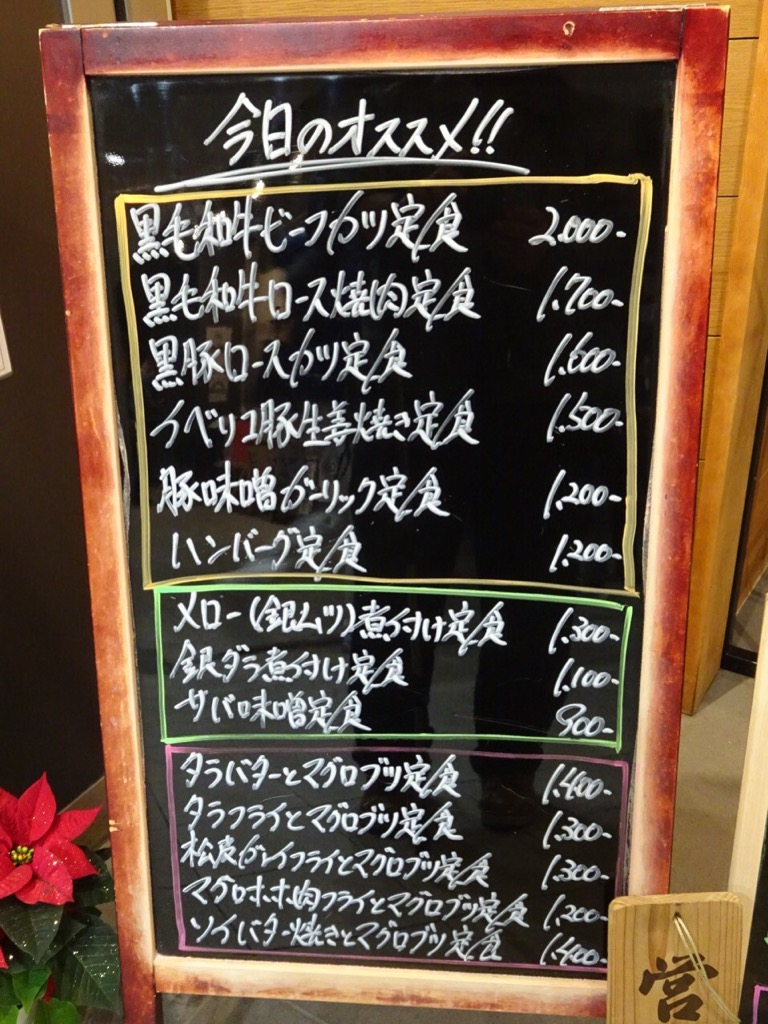 今日のオススメ!!
黒毛和牛ビーフカツ定食 2.000-
黒毛和牛ロース焼肉定食 1.700-
黒豚ロースカツ定食 1.600-
イベリコ豚生姜焼き定食 1.500-
豚味噌ガーリック定食 1.200-
ハンバーグ定食 1.200-
メロー(銀ムツ)煮付け定食 1.300-
銀ダラ煮付け定食 1.100-
サバ味噌定食 900-
タラバターとマグロブツ定食 1.400-
タラフライとマグロブツ定食 1.300-
松皮ガレイフライとマグロブツ定食 1.300-
マグロホホ肉フライとマグロブツ定食 1.200-
ソイバター焼きとマグロブツ定食 1.400-
営